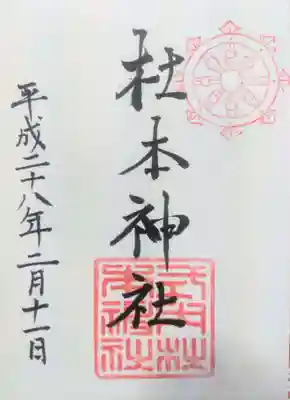 杜本神社
平成二十八年二月十一日
式内杜
本神社